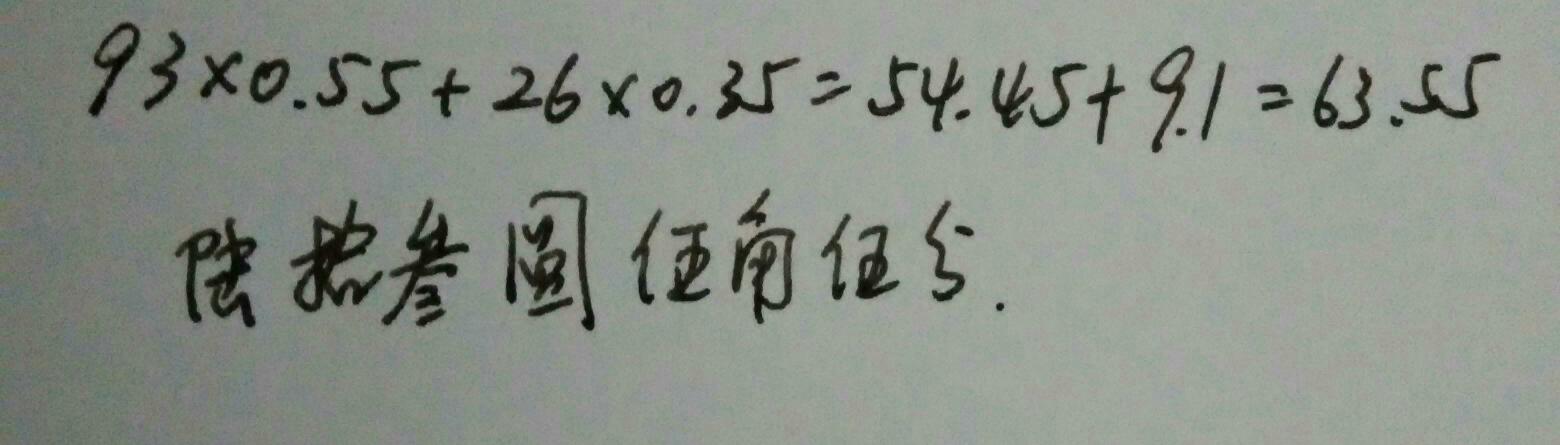 93×0.55+26×0.35=54.45+9.1=63.55
陆拾叁圆伍角伍分.